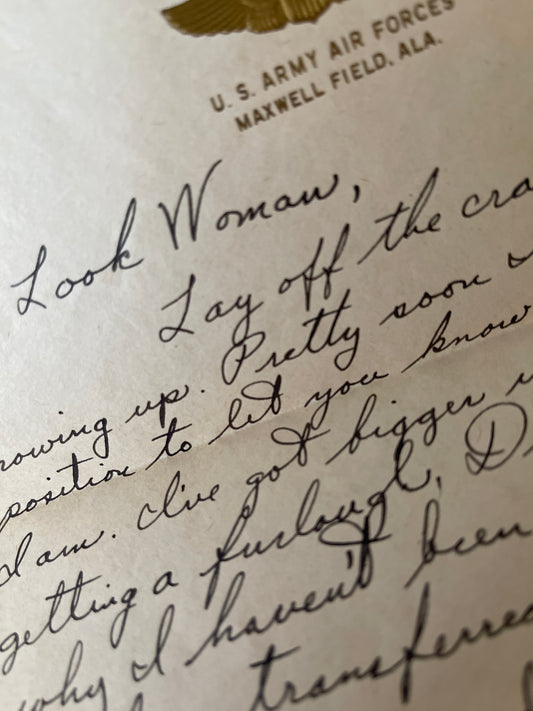 U. S. ARMY AIR FORCES
MAXWELL FIELD, ALA.
Look Woman,
Lay off the cra
rowing up. Pretty soon
position to let you know
I am. I've got bigger
getting a furlough, D
why I haven't been
transferred